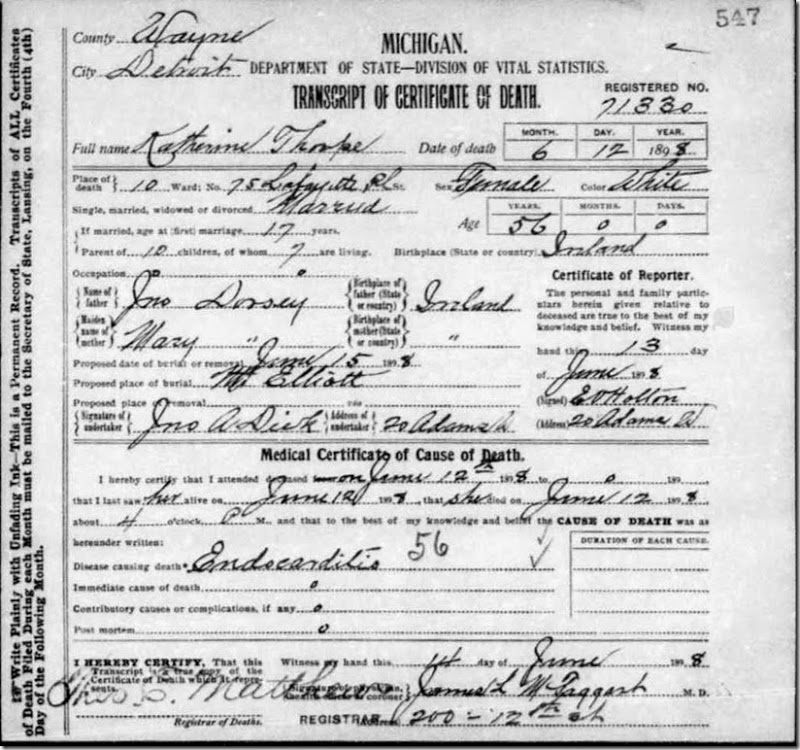 547
County Wayne
City Detroit
MICHIGAN.
DEPARTMENT OF STATE—DIVISION OF VITAL STATISTICS.
TRANSCRIPT OF CERTIFICATE OF DEATH.
REGISTERED NO.
71330
Full name Katherine Thorpe Date of death MONTH. DAY. YEAR.
6 12 1898
Place of death 10 Ward; No. 75 Lafayette Pl St. Sex Female Color White
Single, married, widowed or divorced Married
Age YEARS. MONTHS. DAYS.
56 0 0
If married, age at (first) marriage 17 years.
Parent of 10 children, of whom 7 are living. Birthplace (State or country) Ireland
Occupation 0
Name of father Jno Dorsey Birthplace of father (State or country) Ireland
Maiden name of mother Mary " Birthplace of mother (State or country) "
Proposed date of burial or removal June 15 1898
Proposed place of burial Mt Elliott
Proposed place of removal via
Signature of undertaker Jno A Dick Address of undertaker 20 Adams
Certificate of Reporter.
The personal and family particu-
lars herein given relative to
deceased are true to the best of my
knowledge and belief. Witness my
hand this 13 day
of June 1898
(Signed) E Holton
(Address) 20 Adams
Medical Certificate of Cause of Death.
I hereby certify that I attended deceased on June 12th 1898 to 0 189
that I last saw her alive on June 12 1898, that she died on June 12 1898
about 4 o'clock P M., and that to the best of my knowledge and belief the CAUSE OF DEATH was as
hereunder written:
DURATION OF EACH CAUSE.
56
Disease causing death* Endocarditis
Immediate cause of death 0
Contributory causes or complications, if any 0
Post mortem 0
I HEREBY CERTIFY, That this
Transcript is a true copy of the
Certificate of Death which it repre-
sents.
Registrar of Deaths.
Witness my hand this 14 day of June 1898
James L McTaggart M. D.
REGISTRAR Address 200 - 12th st
Write Plainly with Unfading Ink—This is a Permanent Record. Transcripts of ALL Certificates
of Death Filed During each Month must be mailed to the Secretary of State, Lansing, on the Fourth (4th)
Day of the Following Month.